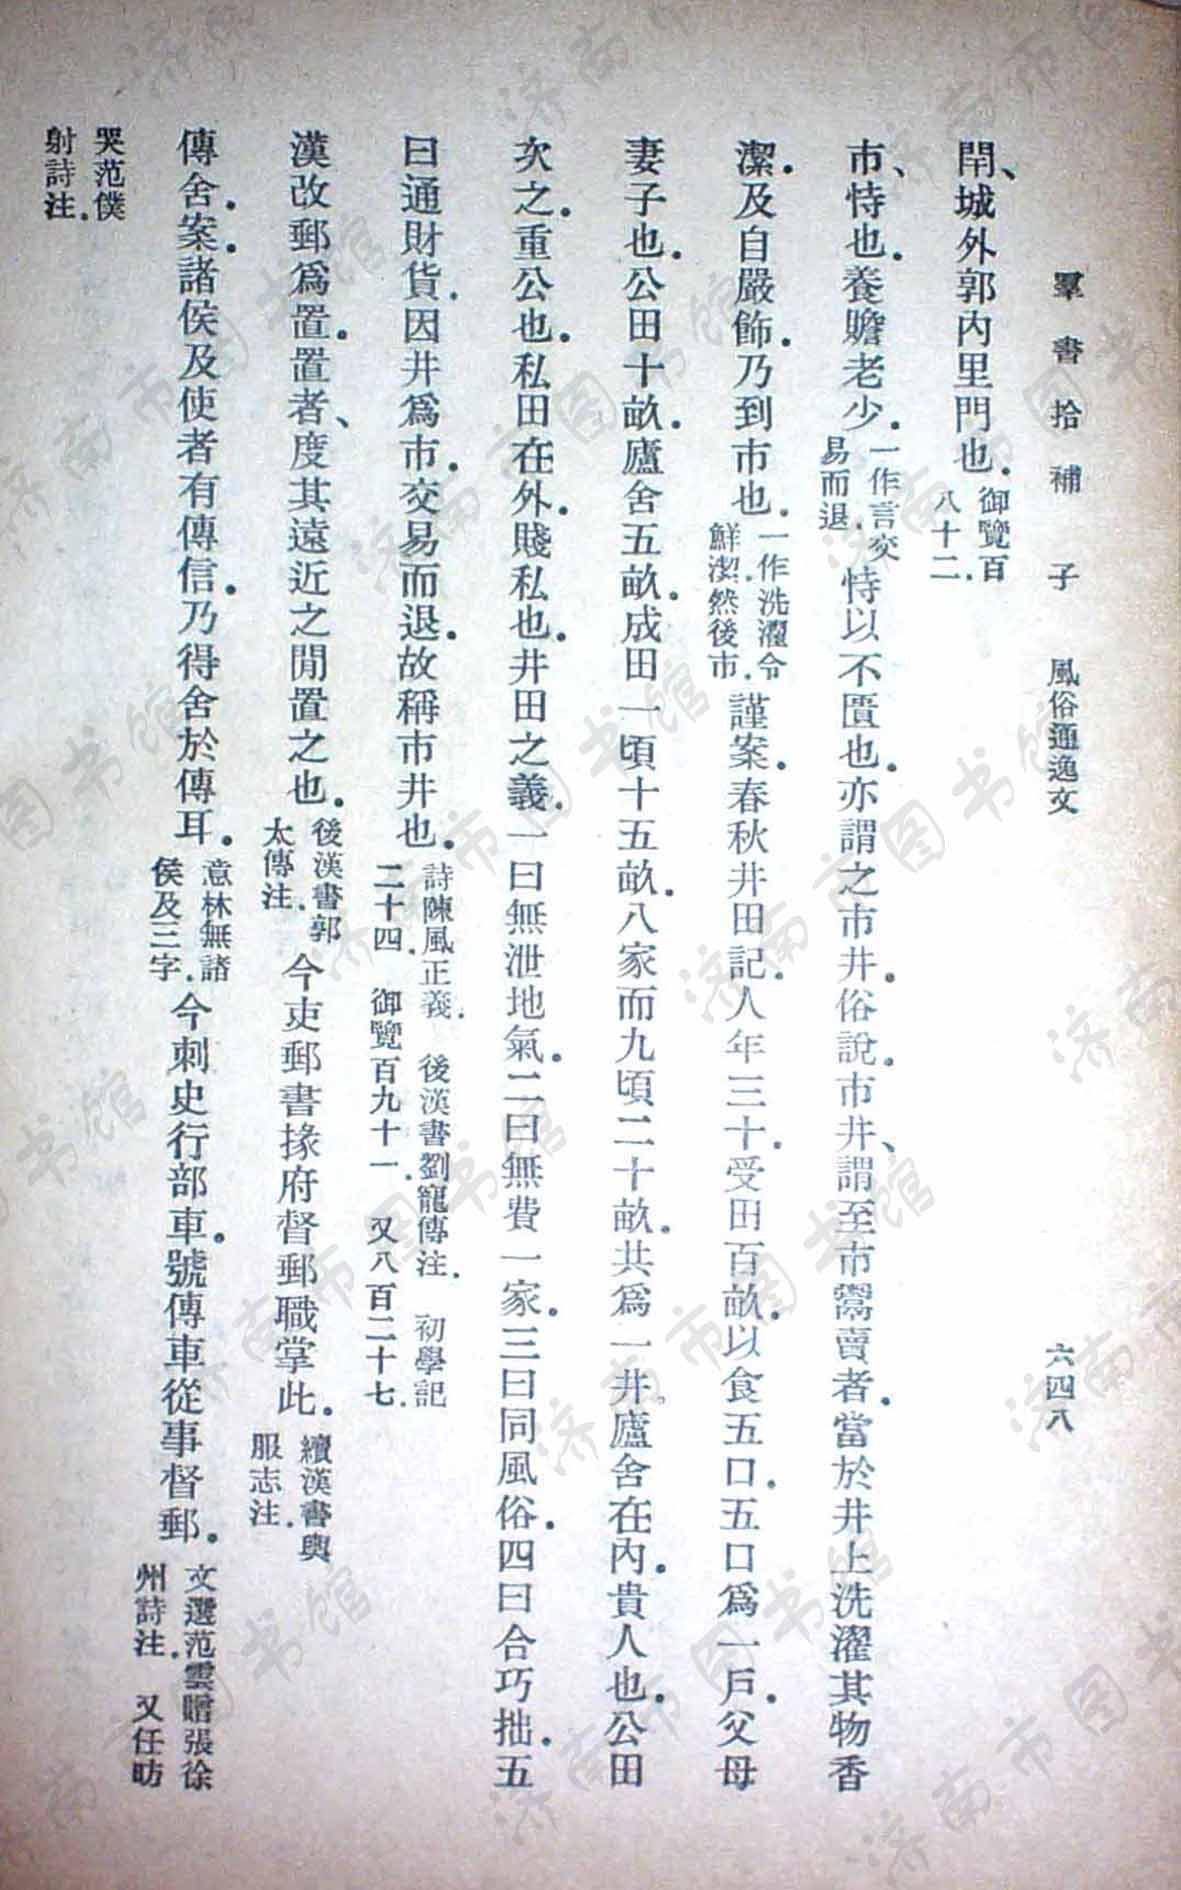 羣書拾補 子 風俗通逸文 六四八
閈、城外郭內里門也.御覽百八十二.
市、恃也.養贍老少.一作言交易而退.恃以不匱也.亦謂之市井.俗說.市井、謂至市鬻賣者.當於井上洗濯其物香
潔.及自嚴飾.乃到市也.一作洗濯令鮮潔.然後市.謹案.春秋井田記.人年三十.受田百畝.以食五口.五口爲一戶.父母
妻子也.公田十畝.廬舍五畝.成田一頃十五畝.八家而九頃二十畝.共爲一井.廬舍在內.貴人也.公田
次之.重公也.私田在外.賤私也.井田之義.一曰無泄地氣.二曰無費一家.三曰同風俗.四曰合巧拙.五
曰通財貨.因井爲市.交易而退.故稱市井也.詩陳風正義.後漢書劉寵傳注.初學記二十四.御覽百九十一.又八百二十七.
漢改郵爲置.置者、度其遠近之閒置之也.後漢書郭太傳注.今吏郵書掾府督郵職掌此.續漢書輿服志注.
傳舍.案.諸侯及使者有傳信.乃得舍於傳耳.意林無諸侯及三字.今刺史行部車.號傳車從事督郵.文選范雲贈張徐州詩注.又任昉
哭范僕射詩注.
济南市图书馆